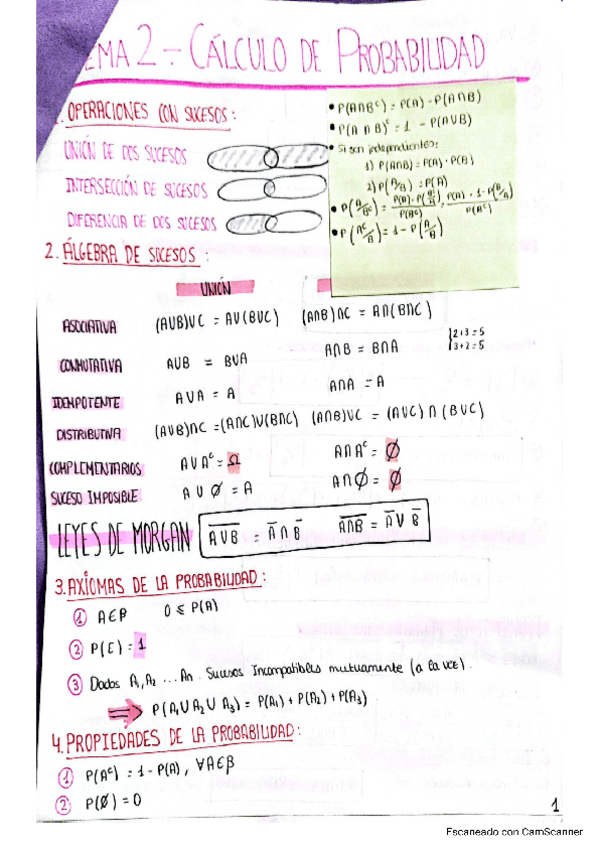 TEMA 2 - CÁLCULO DE PROBABILIDAD
1. OPERACIONES CON SUCESOS:
UNIÓN DE DOS SUCESOS
INTERSECCIÓN DE SUCESOS
DIFERENCIA DE DOS SUCESOS
• P(A∩Bᶜ) = P(A) - P(A∩B)
• P(A∩B)ᶜ = 1 - P(A∪B)
• Si son independientes:
1) P(A∩B) = P(A) · P(B)
2) P(A/B) = P(A)
• P(A/Bᶜ) = P(A) · P(Bᶜ/A) / P(Bᶜ) = P(A) · 1 - P(B/A) / P(Bᶜ)
• P(Aᶜ/B) = 1 - P(A/B)
2. ÁLGEBRA DE SUCESOS:
UNIÓN
ASOCIATIVA (A∪B)∪C = A∪(B∪C) (A∩B)∩C = A∩(B∩C)
CONMUTATIVA A∪B = B∪A A∩B = B∩A 2+3=5
3+2=5
IDEMPOTENTE A∪A = A A∩A = A
DISTRIBUTIVA (A∪B)∩C = (A∩C)∪(B∩C) (A∩B)∪C = (A∪C)∩(B∪C)
COMPLEMENTARIOS A∪Aᶜ = Ω A∩Aᶜ = Ø
SUCESO IMPOSIBLE A∪Ø = A A∩Ø = Ø
LEYES DE MORGAN A̅∪̅B̅ = A̅ ∩ B̅ A̅∩̅B̅ = A̅ ∪ B̅
3. AXIOMAS DE LA PROBABILIDAD:
① A∈β 0 ≤ P(A)
② P(E) = 1
③ Dados A₁, A₂ ... An. Sucesos Incompatibles mutuamente (a la vez).
⇒ P(A₁∪A₂∪A₃) = P(A₁) + P(A₂) + P(A₃)
4. PROPIEDADES DE LA PROBABILIDAD:
① P(Aᶜ) = 1 - P(A), ∀A∈β
② P(Ø) = 0
1
Escaneado con CamScanner